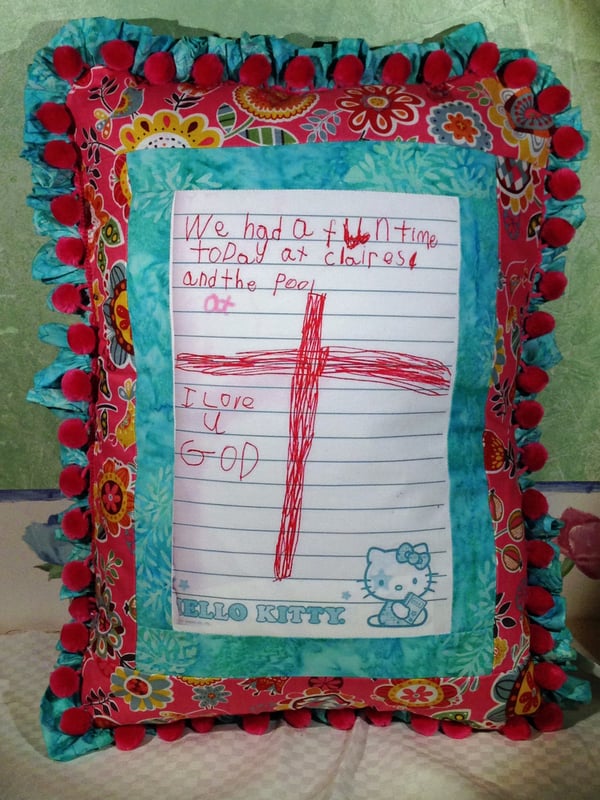 We had a fun time
toDay at claires
and the Pool
at
I Love
U
GOD
ELLO KITTY.